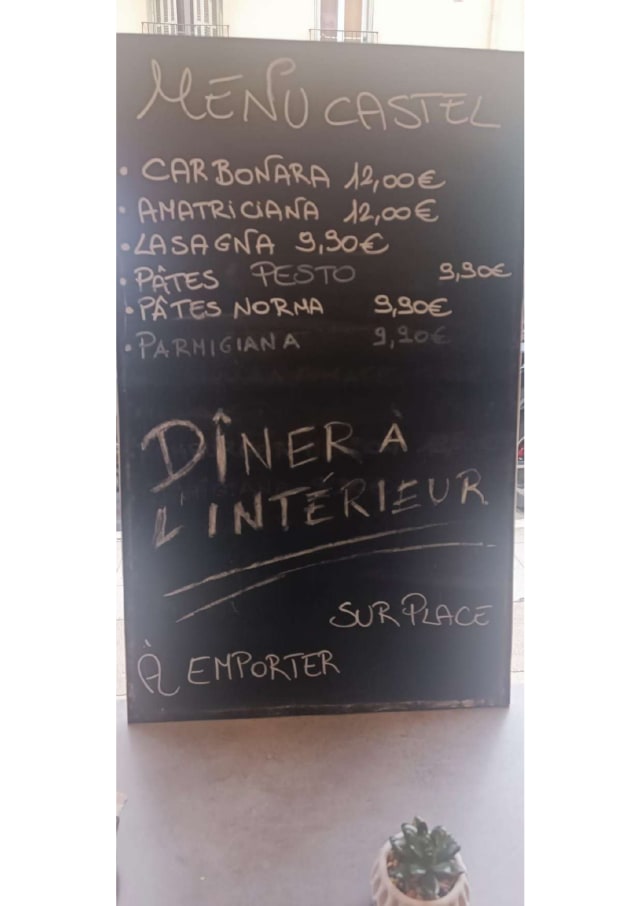 MENU CASTEL
• CARBONARA 12,00€
• AMATRICIANA 12,00€
• LASAGNA 9,90€
• PÂTES PESTO 9,90€
• PÂTES NORMA 9,90€
• PARMIGIANA 9,90€
DÎNER À
L'INTÉRIEUR
SUR PLACE
À EMPORTER